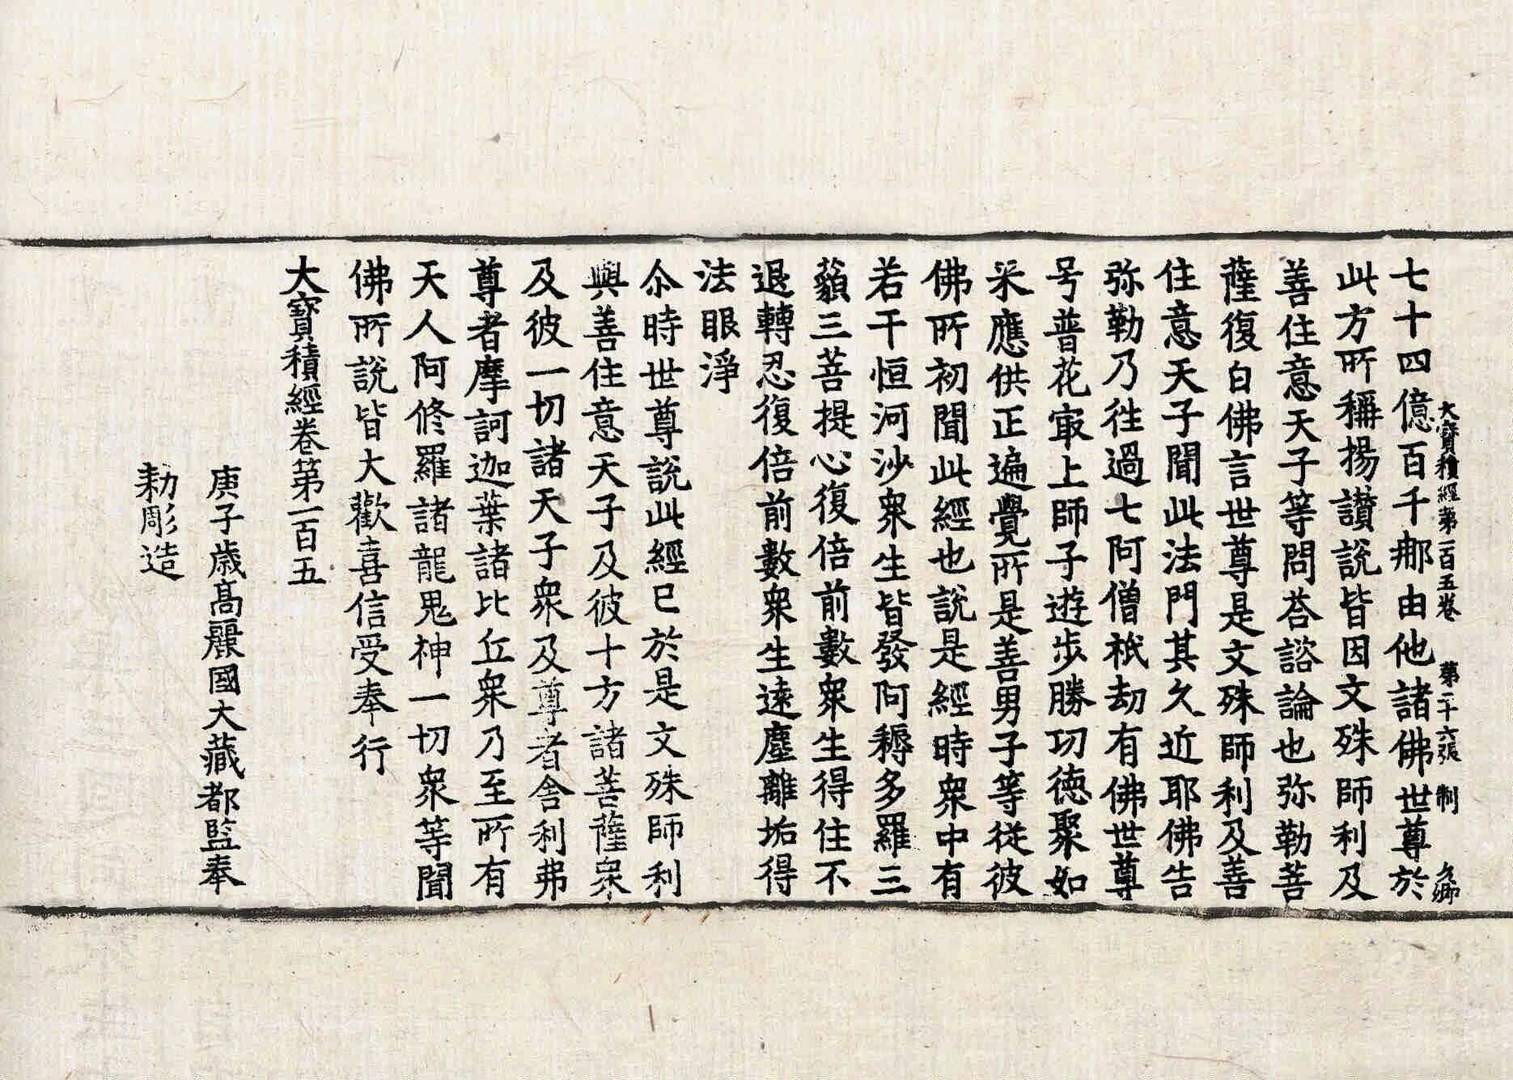 大寶積經第一百五卷 第二十六張 制 久卿
七十四億百千那由他諸佛世尊於
此方所稱揚讃說皆因文殊師利及
善住意天子等問荅諮論也弥勒菩
薩復白佛言世尊是文殊師利及善
住意天子聞此法門其久近耶佛告
弥勒乃往過七阿僧祇劫有佛世尊
号普花㝡上師子遊步勝功德聚如
来應供正遍覺所是善男子等從彼
佛所初聞此經也說是經時衆中有
若干恒河沙衆生皆發阿耨多羅三
藐三菩提心復倍前數衆生得住不
退轉忍復倍前數衆生遠塵離垢得
法眼淨
尒時世尊說此經已於是文殊師利
與善住意天子及彼十方諸菩薩衆
及彼一切諸天子衆及尊者舍利弗
尊者摩訶迦葉諸比丘衆乃至所有
天人阿修羅諸龍鬼神一切衆等聞
佛所說皆大歡喜信受奉行
大寶積經卷第一百五
庚子歳高麗國大藏都監奉
勑彫造